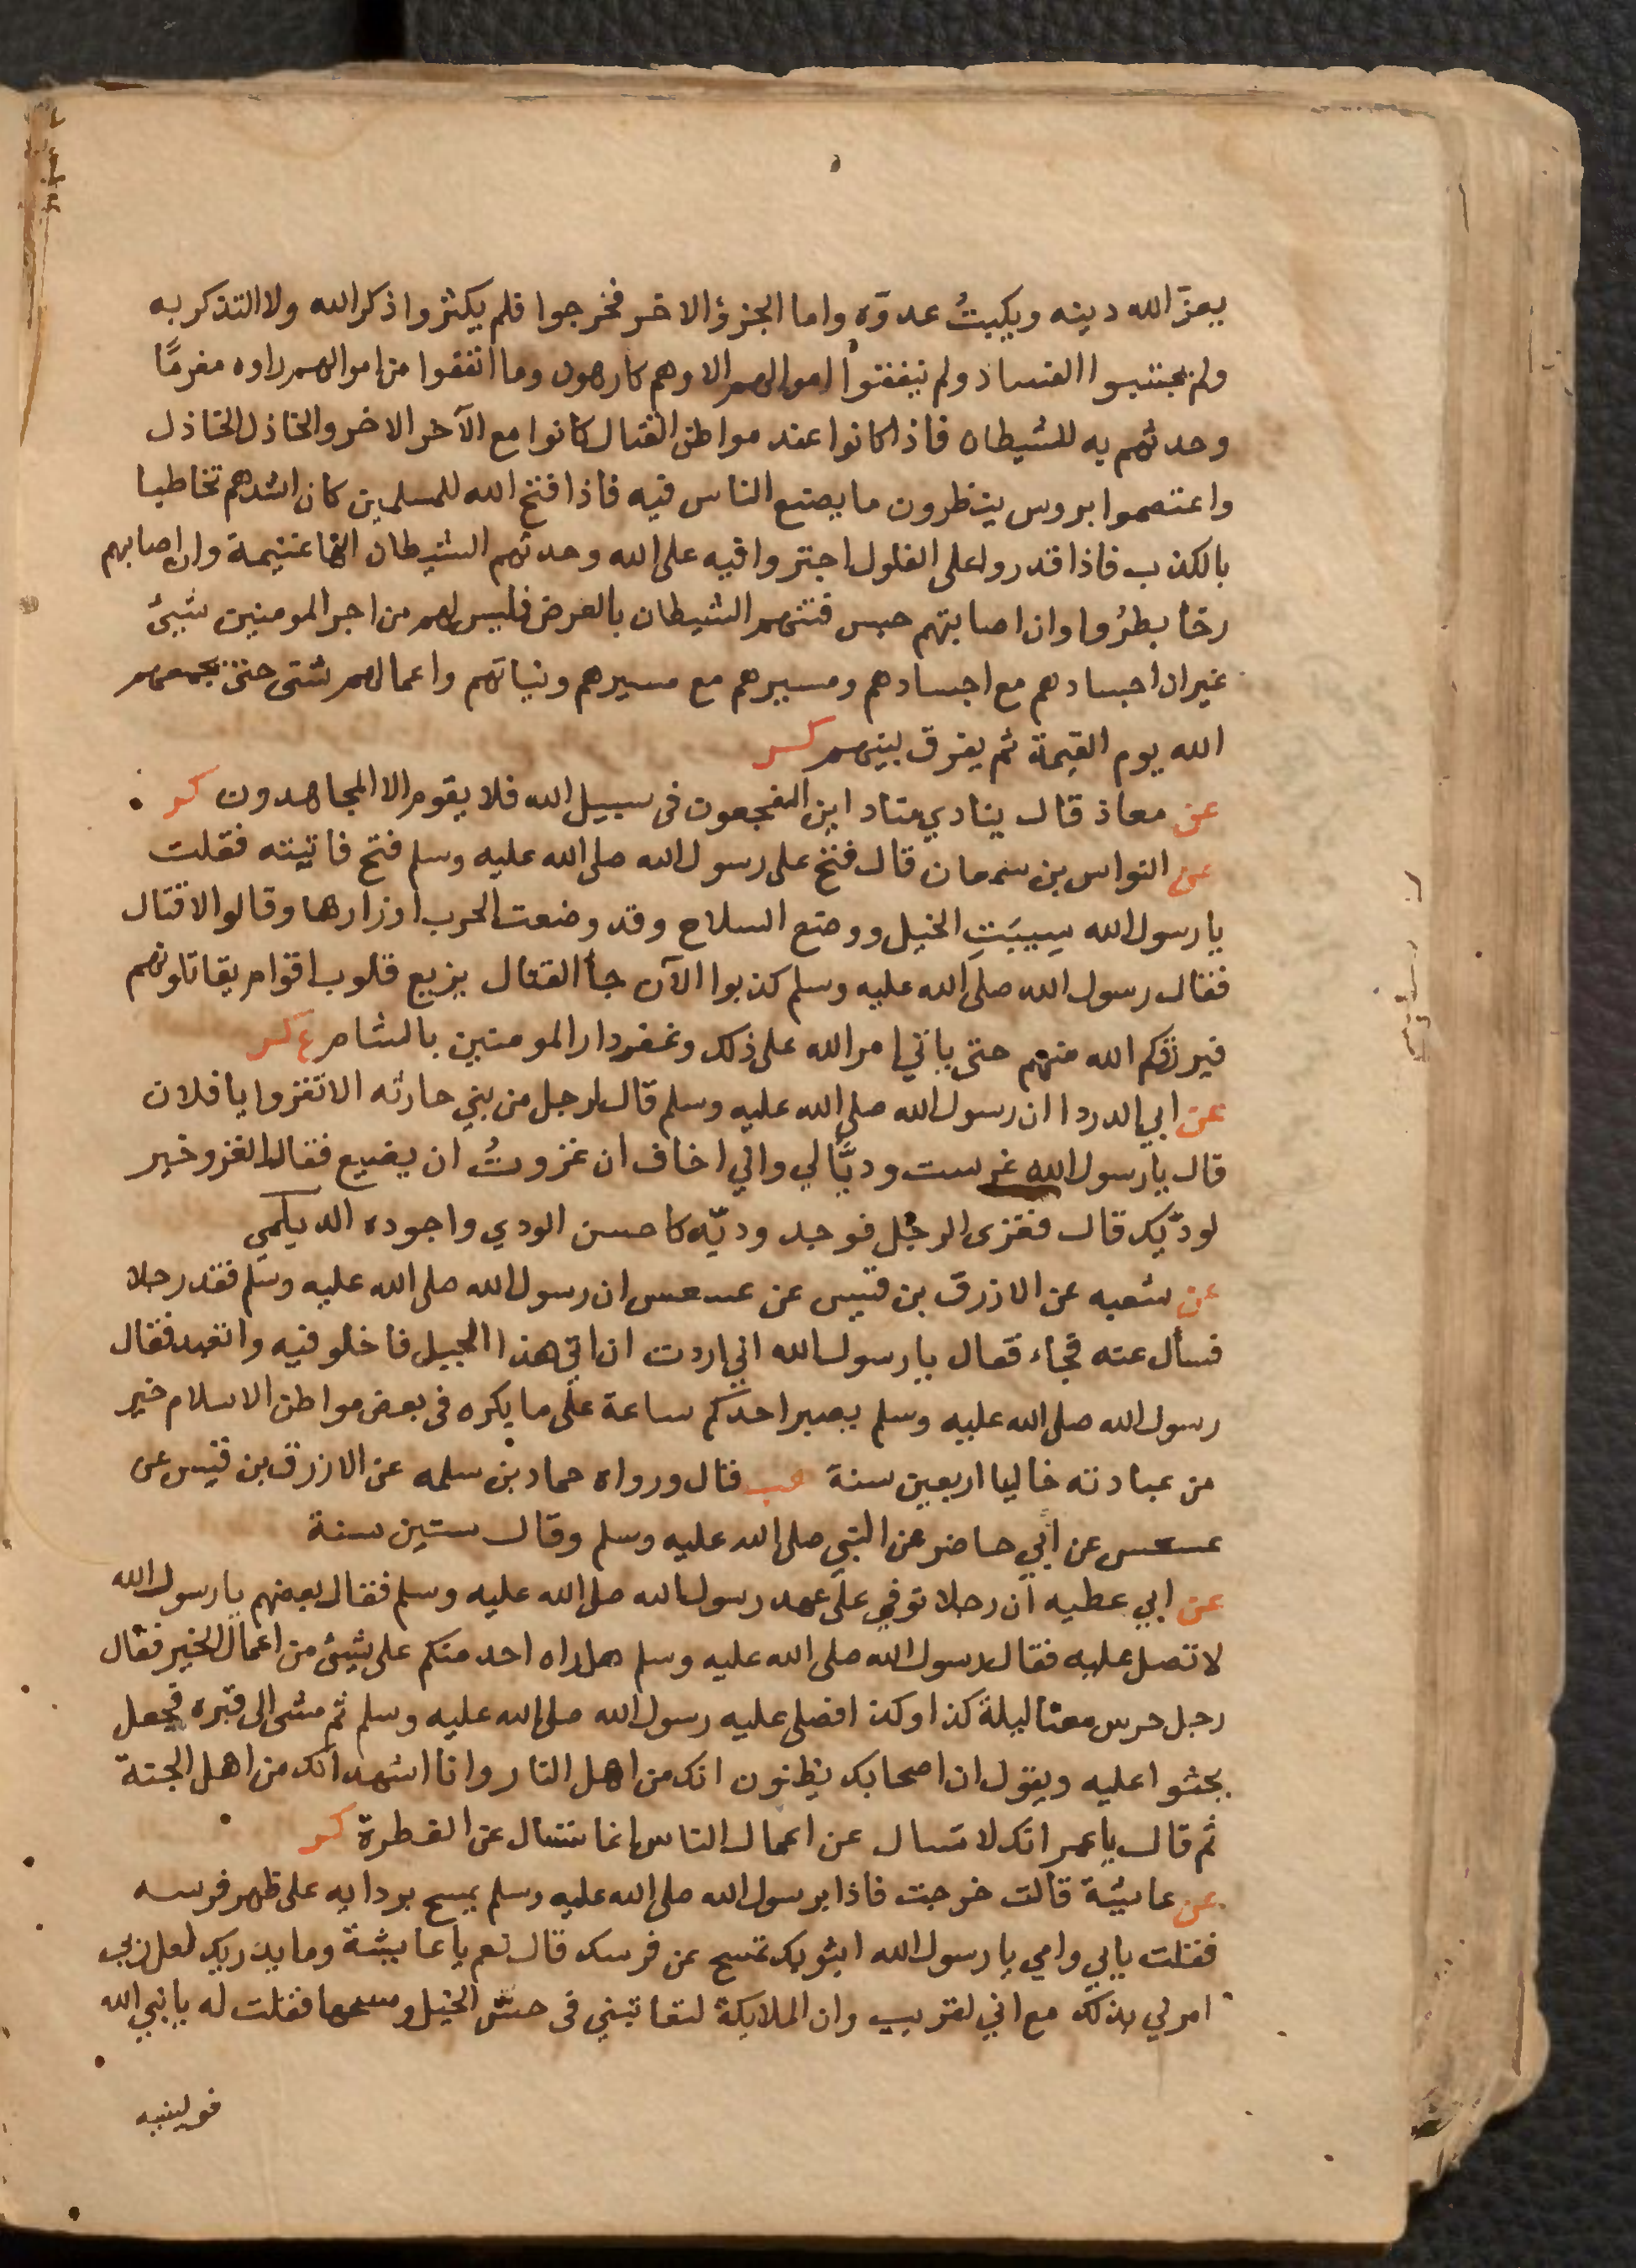 يعزّ الله دينه ويكبتُ عدوّه واما الجزؤ الاخر فخرجوا فلم يكثروا ذكر الله ولا التذكر به
ولم يجتنبوا الفساد ولم ينفقوا اموالهم الا وهم كارهون وما انفقوا من اموالهم راوه مغرمًا
وحدثهم به الشيطان فاذا كانوا عند مواطن القتال كانوا مع الآخر الاخر والخاذل الخاذل
واعتصموا بروس ينظرون ما يصنع الناس فيه فاذا فتح الله للمسلمين كان اشدهم تخاطبا
بالكذب فاذا قدروا على الغلول اجتروا فيه على الله وحدثهم الشيطان انها غنيمة وان اصابهم
رخا بطرُوا وان اصابتهم حبس فتنهم الشيطان بالعرض فليس لهم من اجر المومنين شيئ
غير ان اجسادهم مع اجسادهم ومسيرهم مع مسيرهم ونياتهم واعمالهم شتى حتى يجمعهم
الله يوم القيمة ثم يفرق بينهم كر
عن معاذ قال ينادي مناد اين المفجعون فى سبيل الله فلا يقوم الا المجاهدون كر
عن النواس بن سمعان قال فتح على رسول الله صلى الله عليه وسلم فتح فاتيته فقلت
يا رسول الله سيبت الخيل ووضع السلاح وقد وضعت الحرب اوزارها وقالوا لا قتال
فقال رسول الله صلى الله عليه وسلم كذبوا الآن جا القتال يزيع قلوب اقوام يقاتلونهم
فيرزقكم الله منهم حتى ياتي امر الله على ذلك وعقر دار المومنين بالشام ع كر
عن ابي الدردا ان رسول الله صلى الله عليه وسلم قال لرجل من بني حارثه الا تغزوا يا فلان
قال يا رسول الله غرست وديًّا لي واني اخاف ان غزوتُ ان يضيع فقال الغزو خير
لوديّك قال فغزى الرجل فوجد وديّه كاحسن الودي واجوده الديلمي
عن شعبه عن الازرق بن قيس عن عسعس ان رسول الله صلى الله عليه وسلم فقد رجلا
فسأل عنه فجاء فقال يا رسول الله اني اردت ان اتي هذا الجبل فاخلو فيه واتعبد فقال
رسول الله صلى الله عليه وسلم يصبر احدكم ساعة على ما يكره فى بعض مواطن الاسلام خير
من عبادته خاليا اربعين سنة هب قال ورواه حماد بن سلمه عن الازرق بن قيس عن
عسعس عن أبي حاضر عن النبي صلى الله عليه وسلم وقال ستين سنة
عن ابي عطيه ان رجلا توفي على عهد رسول الله صلى الله عليه وسلم فقال بعضهم يا رسول الله
لا تصل عليه فقال رسول الله صلى الله عليه وسلم هل راه احد منكم على شيئ من اعمال الخير فقال
رجل حرس معنا ليلة كذا وكذا فصلى عليه رسول الله صلى الله عليه وسلم ثم مشى الى قبره فجعل
يحثوا عليه ويقول ان اصحابك يظنون انك من اهل النار وانا اشهد انك من اهل الجنة
ثم قال يا عمر انك لا تسال عن اعمال الناس انما تسال عن الفطرة كر
عن عايشة قالت خرجت فاذا برسول الله صلى الله عليه وسلم يمسح بردايه على ظهر فرسه
فقلت يابي وامي يا رسول الله ابثوبك تمسح عن فرسك قال نعم يا عايشة وما يدريك لعل ربي
امرني بذلك مع اني لقريب وان الملايكة لتعاتبني فى حسّ الخيل ومسحها فقلت له يا نبي الله
فولينيه